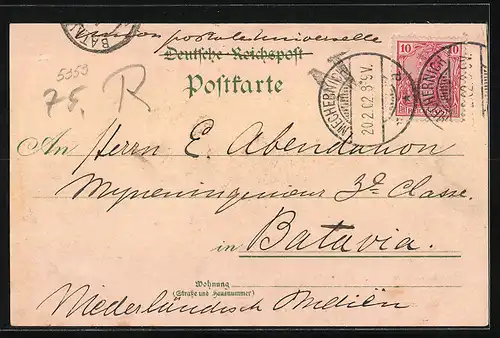 BATA
Union postale universelle
Deutsche Reichspost
5959
75,
R
Postkarte
MECHERNICH
20.2.02.8-9V.
10 10
MECHERNICH
An Herrn E. Abendanon
Mijneningenieur 3e Classe.
in Batavia.
Wohnung
(Straße und Hausnummer)
Niederländisch Indiën